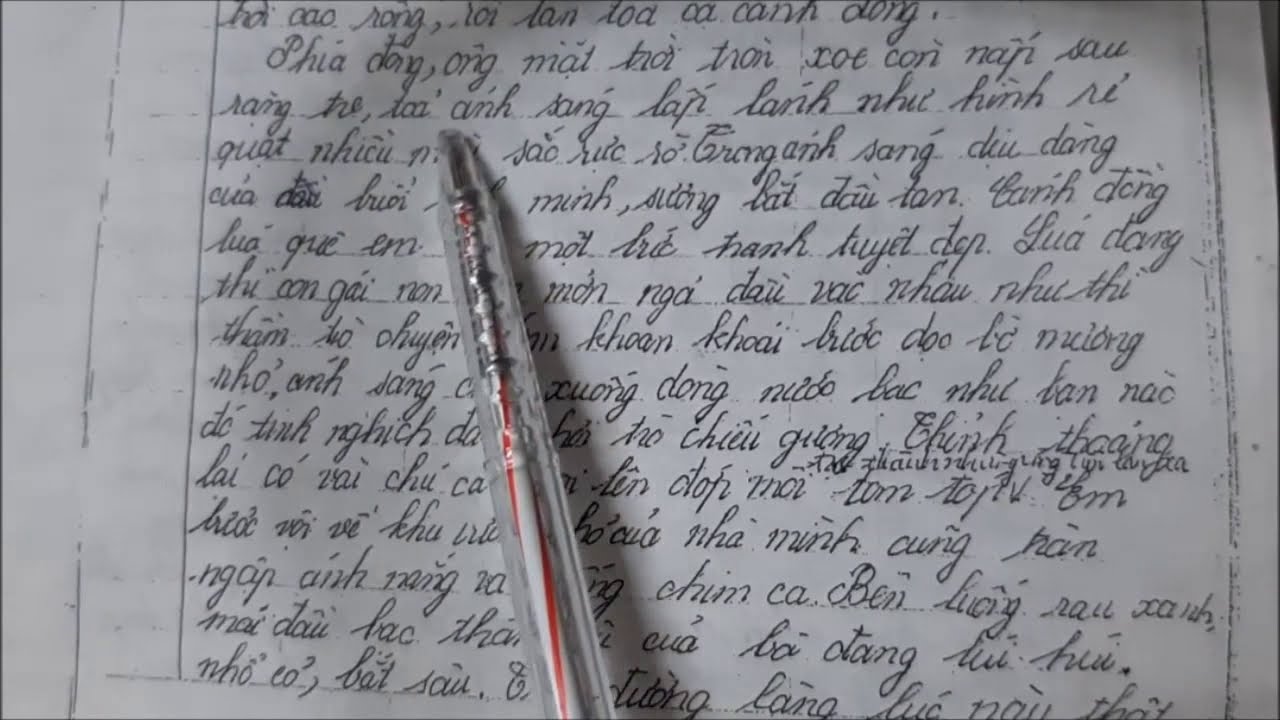 trời cao rộng, rồi lan toả cả cánh đồng.
Phía đông, ông mặt trời tròn xoe còn nấp sau
rặng tre, toả ánh sáng lấp lánh như hình rẻ
quạt nhiều sắc rực rỡ. Trong ánh sáng dịu dàng
của buổi minh, sương bắt đầu tan. Cánh đồng
luá quê em một bức tranh tuyệt đẹp. Luá đang
thì con gái non mởn ngả đầu vào nhau như thì
thầm trò chuyện khoan khoái bước dọc bờ mương
nhỏ, ánh sáng xuống dòng nước bạc như bạn nào
đó tinh nghịch trò chiếu gương. Thỉnh thoảng
lại có vài chú cá lên đớp mồi tôm tốp. Em
bước vội về khu nhỏ của nhà mình cũng tràn
ngập ánh nắng và chim ca. Bên luống rau xanh,
mái đầu bạc của bà đang lúi húi.
nhổ cỏ, bắt sâu. đường làng lúc này thật